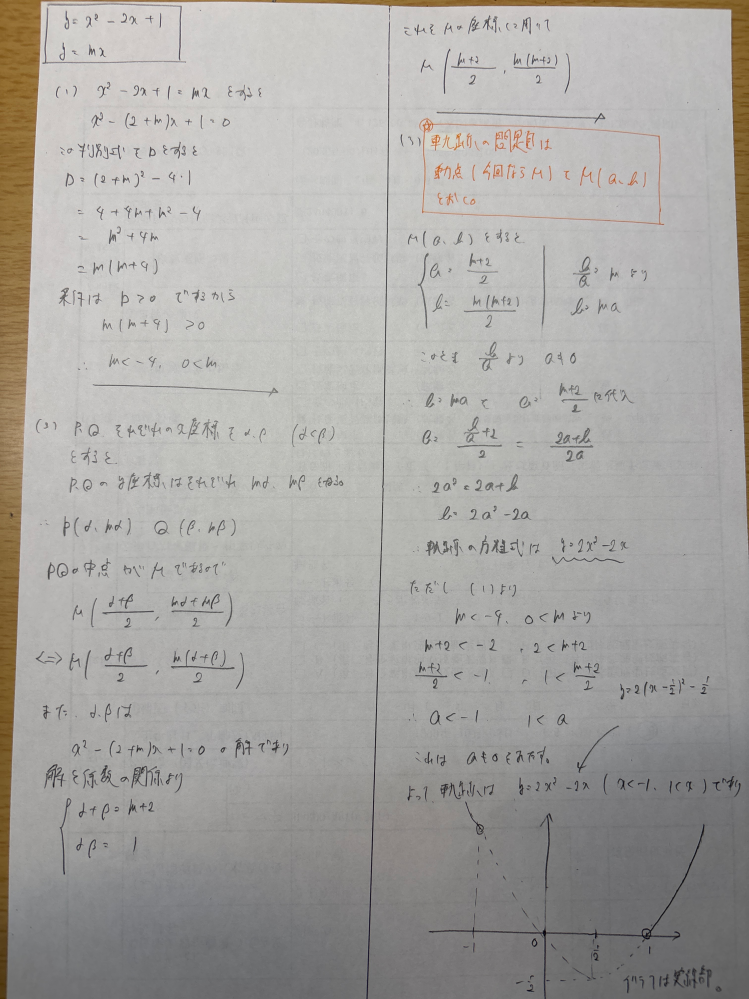 y = x² - 2x + 1
y = mx
(1) x² - 2x + 1 = mx とすると
x² - (2+m)x + 1 = 0
この判別式をDとすると
D = (2+m)² - 4・1
= 4 + 4m + m² - 4
= m² + 4m
= m(m+4)
条件は D > 0 であるから
m(m+4) > 0
∴ m < -4, 0 < m
(2) P, Q それぞれのx座標を α, β (α<β)
とすると
P, Q の y座標はそれぞれ mα, mβ となる。
∴ P(α, mα) Q(β, mβ)
PQの中点が M であるので
M( (α+β)/2 , (mα+mβ)/2 )
⇔ M( (α+β)/2 , m(α+β)/2 )
また α, βは
x² - (2+m)x + 1 = 0 の解であり
解と係数の関係より
α + β = m+2
αβ = 1
これを M の座標に用いて
M( (m+2)/2 , m(m+2)/2 )
(3) 軌跡の問題は
動点(今回なら M)を M(a, b)
とおく。
M(a, b) とすると
a = (m+2)/2
b = m(m+2)/2
b/a = m より
b = ma
このとき b/a より a≠0
∴ b = ma を a = (m+2)/2 に代入
a = (b/a + 2)/2 = (2a+b)/2a
∴ 2a² = 2a + b
b = 2a² - 2a
∴ 軌跡の方程式は y = 2x² - 2x
ただし (1)より
m < -4, 0 < m より
m+2 < -2 , 2 < m+2
(m+2)/2 < -1 , 1 < (m+2)/2
y = 2(x - 1/2)² - 1/2
∴ a < -1 1 < a
これは a≠0 をみたす。
よって 軌跡は y = 2x² - 2x (x < -1, 1 < x) であり
-1 0 1/2 1
-1/2
グラフは実線部。